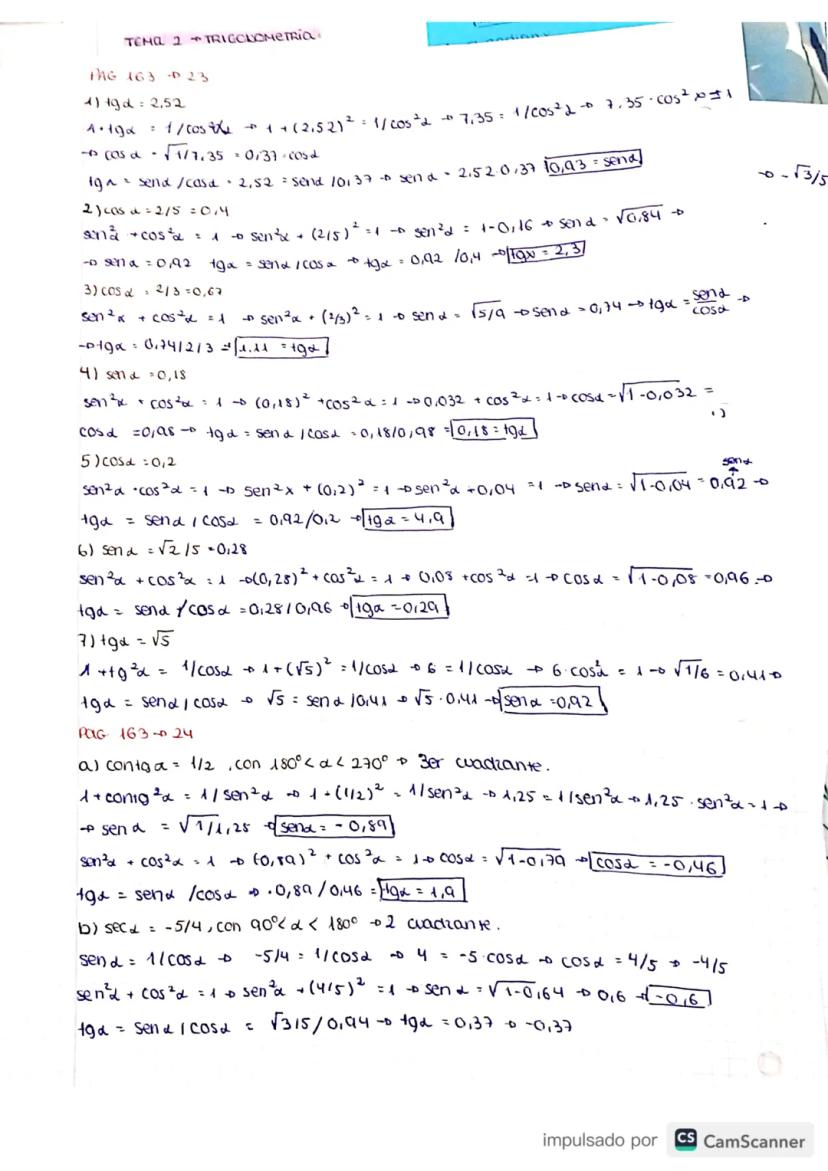 TEMA 2 → TRIGONOMETRÍA
PAG 163 → 23
1) tgα = 2,52
1 + tgα = 1/cos²α → 1 + (2,52)² = 1/cos²α → 7,35 = 1/cos²α → 7,35 · cos²α = 1
→ cosα = √1/7,35 = 0,37 = cosα
tgα = senα/cosα = 2,52 = senα/0,37 → senα = 2,52·0,37 0,93 = senα
→ -√3/5
2) cosα = 2/5 = 0,4
sen²α + cos²α = 1 → sen²α + (2/5)² = 1 → sen²α = 1-0,16 → senα = √0,84 →
→ senα = 0,92 tgα = senα/cosα → tgα = 0,92/0,4 → tgα = 2,3
3) cosα = 2/3 = 0,67
sen²α + cos²α = 1 → sen²α + (2/3)² = 1 → senα = √5/9 → senα = 0,74 → tgα = senα/cosα →
→ tgα = 0,74/2/3 = 1.11 = tgα
4) senα = 0,18
sen²α + cos²α = 1 → (0,18)² + cos²α = 1 → 0,032 + cos²α = 1 → cosα = √1-0,032 =
cosα = 0,98 → tgα = senα/cosα = 0,18/0,98 = 0,18 = tgα
5) cosα = 0,2
senα
sen²α + cos²α = 1 → sen²x + (0,2)² = 1 → sen²α + 0,04 = 1 → senα = √1-0,04 = 0,92 →
tgα = senα/cosα = 0,92/0,2 → tgα = 4,9
6) senα = √2/5 = 0,28
sen²α + cos²α = 1 → (0,28)² + cos²α = 1 → 0,08 + cos²α = 1 → cosα = √1-0,08 = 0,96 →
tgα = senα/cosα = 0,28/0,96 → tgα = 0,29
7) tgα = √5
1 + tg²α = 1/cosα → 1 + (√5)² = 1/cosα → 6 = 1/cosα → 6·cos²α = 1 → √1/6 = 0,41 →
tgα = senα/cosα → √5 = senα/0,41 → √5 · 0,41 → senα = 0,92
PAG 163 → 24
a) contgα = 1/2, con 180° < α < 270° → 3er cuadrante.
1 + contg²α = 1/sen²α → 1 + (1/2)² = 1/sen²α → 1,25 = 1/sen²α → 1,25 · sen²α = 1 →
→ senα = √1/1,25 → senα = -0,89
sen²α + cos²α = 1 → (0,89)² + cos²α = 1 → cosα = √1-0,79 → cosα = -0,46
tgα = senα/cosα → -0,89/0,46 = tgα = 1,9
b) secα = -5/4, con 90° < α < 180° → 2 cuadrante.
senα = 1/cosα → -5/4 = 1/cosα → 4 = -5·cosα → cosα = 4/5 → -4/5
sen²α + cos²α = 1 → sen²α + (4/5)² = 1 → senα = √1-0,64 → 0,6 → -0,6
tgα = senα/cosα = √3/5/0,94 → tgα = 0,37 → -0,37
impulsado por CS CamScanner